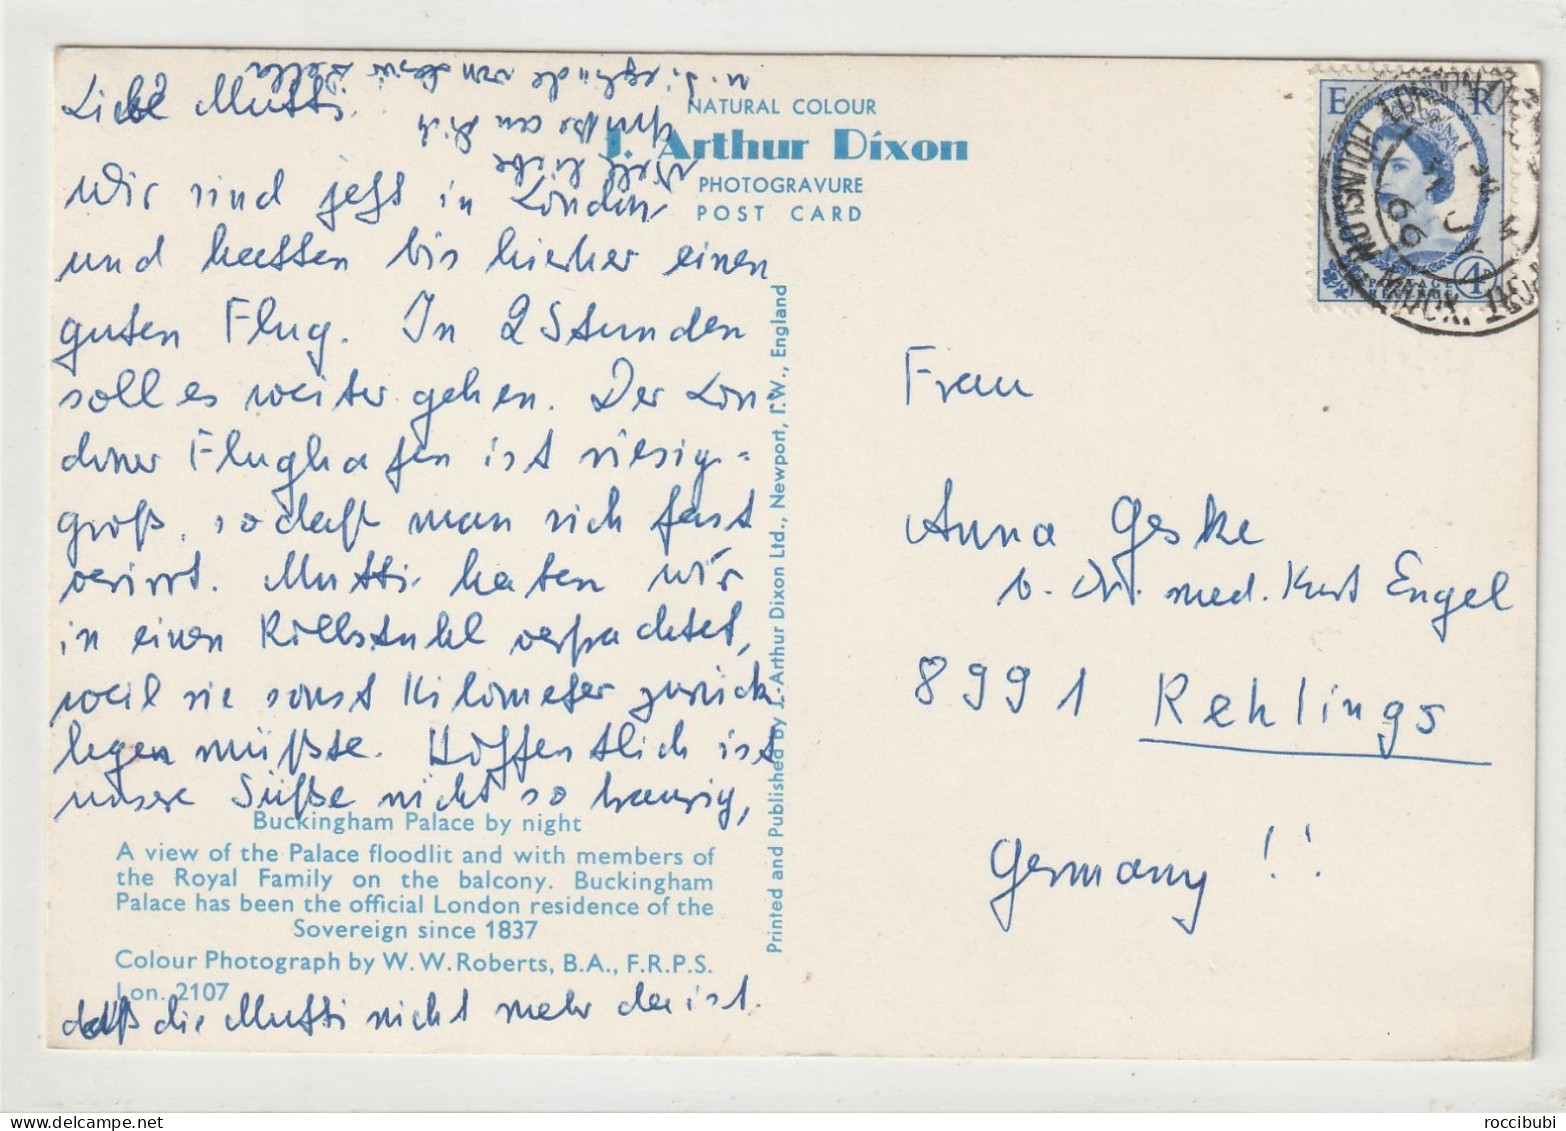 Liebe Mutti.
Wir sind jetzt in London,
und hatten bis hierher einen
guten Flug. In 2 Stunden
soll es weiter gehen. Der Lon
doner Flughafen ist riesig-
groß, so daß man sich fast
verirrt. Mutti haben wir
in einen Rollstuhl verfrachtet,
weil sie sonst Kilometer zurück
legen müßte. Hoffentlich ist
unsere Süße nicht so traurig,
daß die Mutti nicht mehr da ist.
Viele liebe
Grüße an Dich
von Deiner Bella
NATURAL COLOUR
J. Arthur Dixon
PHOTOGRAVURE
POST CARD
Buckingham Palace by night
A view of the Palace floodlit and with members of
the Royal Family on the balcony. Buckingham
Palace has been the official London residence of the
Sovereign since 1837
Colour Photograph by W. W. Roberts, B.A., F.R.P.S.
Lon. 2107
Printed and Published by J. Arthur Dixon Ltd., Newport, I.W., England
E R
POSTAGE
REVENUE
4D
HOUNSLOW
MDDX.
66
Frau
Anna Geske
b. Dr. med. Kurt Engel
8991 Rehlings
Germany!!
roccibubi